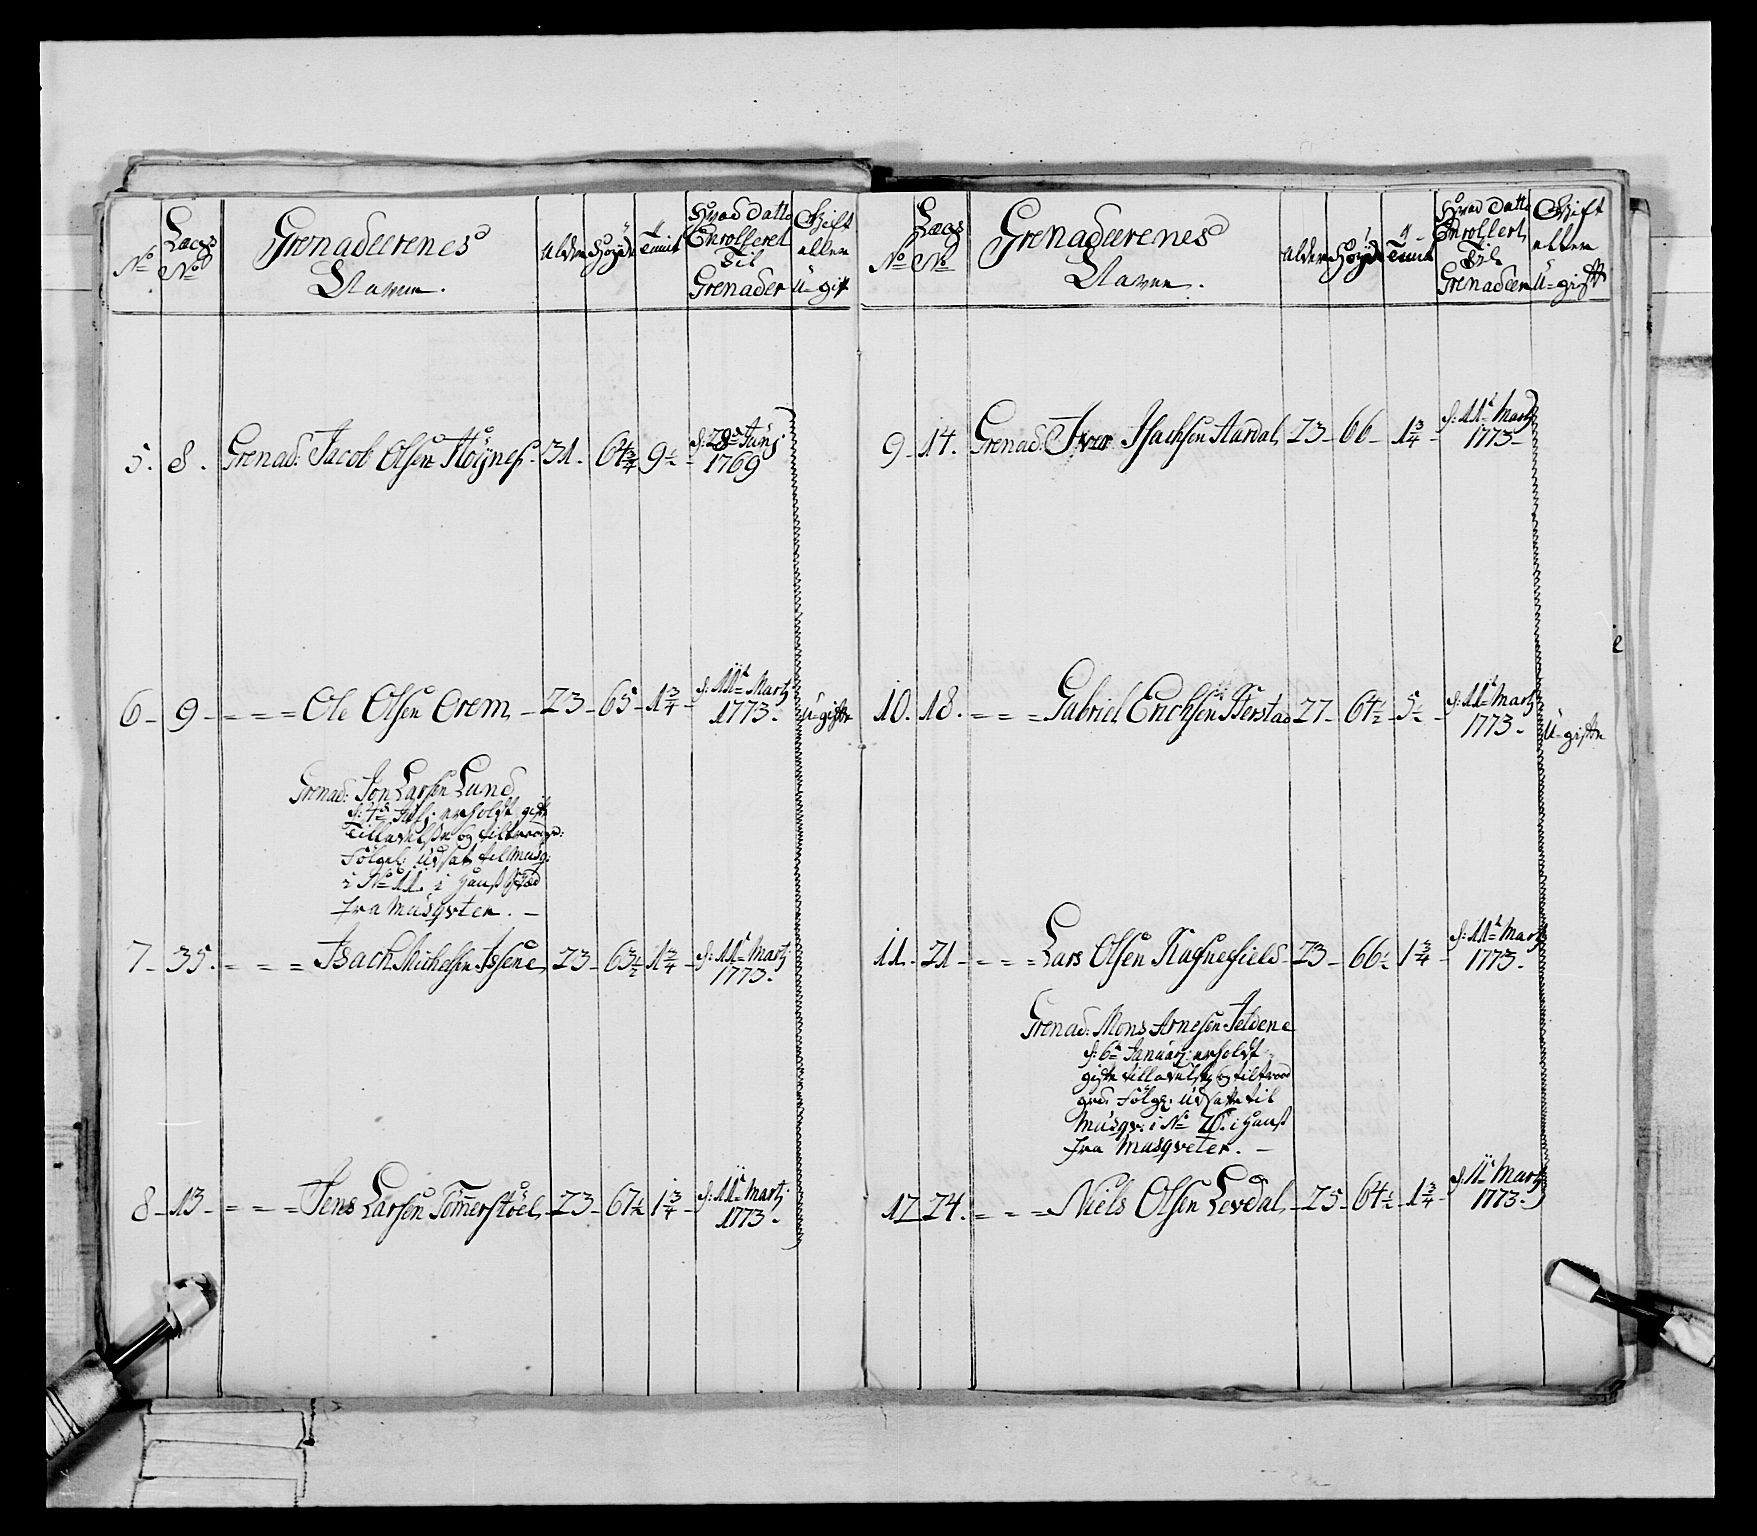 No
Laegs No
Grenadeerenes Navne.
Alder
Høyde
Tiint
Hvad datto Enrolleret til Grenader
Gift eller U-gift
5. 8. Grenad: Jacob Olsen Höÿnes. 31. 64 3/4 9 1/2 d: 28de Junÿ 1769
6 - 9 - = = = Ole Olsen Orem - 23 - 65 - 1 3/4 - d: 11te Martÿ 1773. U-gifte
Grenad: Jon Larsen Lund
erholdt gifte
Tilladelse og
Følgel: udsat til Musq:
i No 11. i Hanß Stæd
fra Musqveter. -
7 - 35. = = = Isach Michelsen 23 - 63 1/2 1 3/4 - d: 11te Martÿ 1773.
8 - 13 - = = = Jens Larsen Tömmerstöel - 23 - 67 1/2 1 3/4 - d: 11te Martÿ 1773.
No
Laegs No
Grenadeerenes Navne.
Alder
Høyde
Tiint
Hvad datto Enrollert til Grenadeer
Gift eller U-gift
9 - 14. Grenad: Iver Isachsen Aardal, 23 - 66 - 1 3/4 - d: 11te Martÿ 1773 -
10. 18. = = = Gabriel Erichsen 27 - 64 1/2 - 5 1/2 - d: 11te Martÿ 1773. U-gifte
11. 21 - = = = Lars Olsen 23 - 66 1/2 1 3/4 - d: 11te Martÿ 1773.
Grenad: Mons Arnesen
d: 6te Januarÿ: erholdt
gifte tilladelse, og
Følge: udsatt til
Musqv: i No 20. i Hanß
fra Musqveter. -
12 24. = = = Niels Olsen Levdal - 25 - 64 1/2 - 1 3/4 - d: 11te Martÿ 1773.